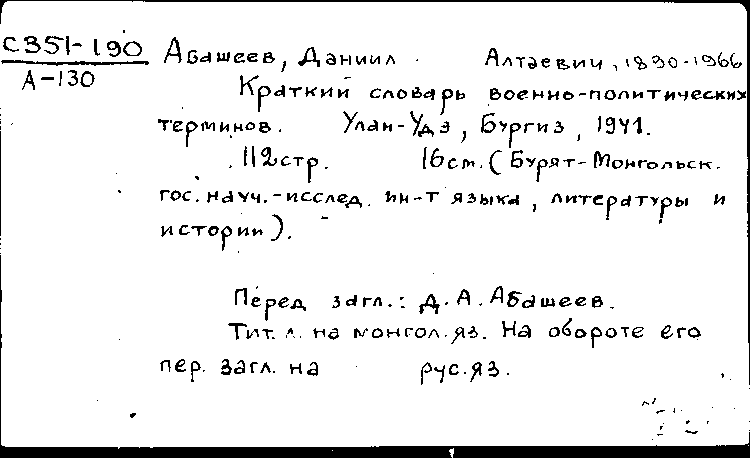 С351-190
А-130
Абашеев, Даниил Алтаевич, 1890-1966
Краткий словарь военно-политических
терминов. Улан-Удэ, Бургиз, 1941.
112стр. 16см. (Бурят-Монгольск.
гос. науч.-исслед. ин-т языка, литературы и
истории).
Перед загл.: Д. А. Абашеев.
Тит. л. на монгол.яз. На обороте его
пер. загл. на рус.яз.